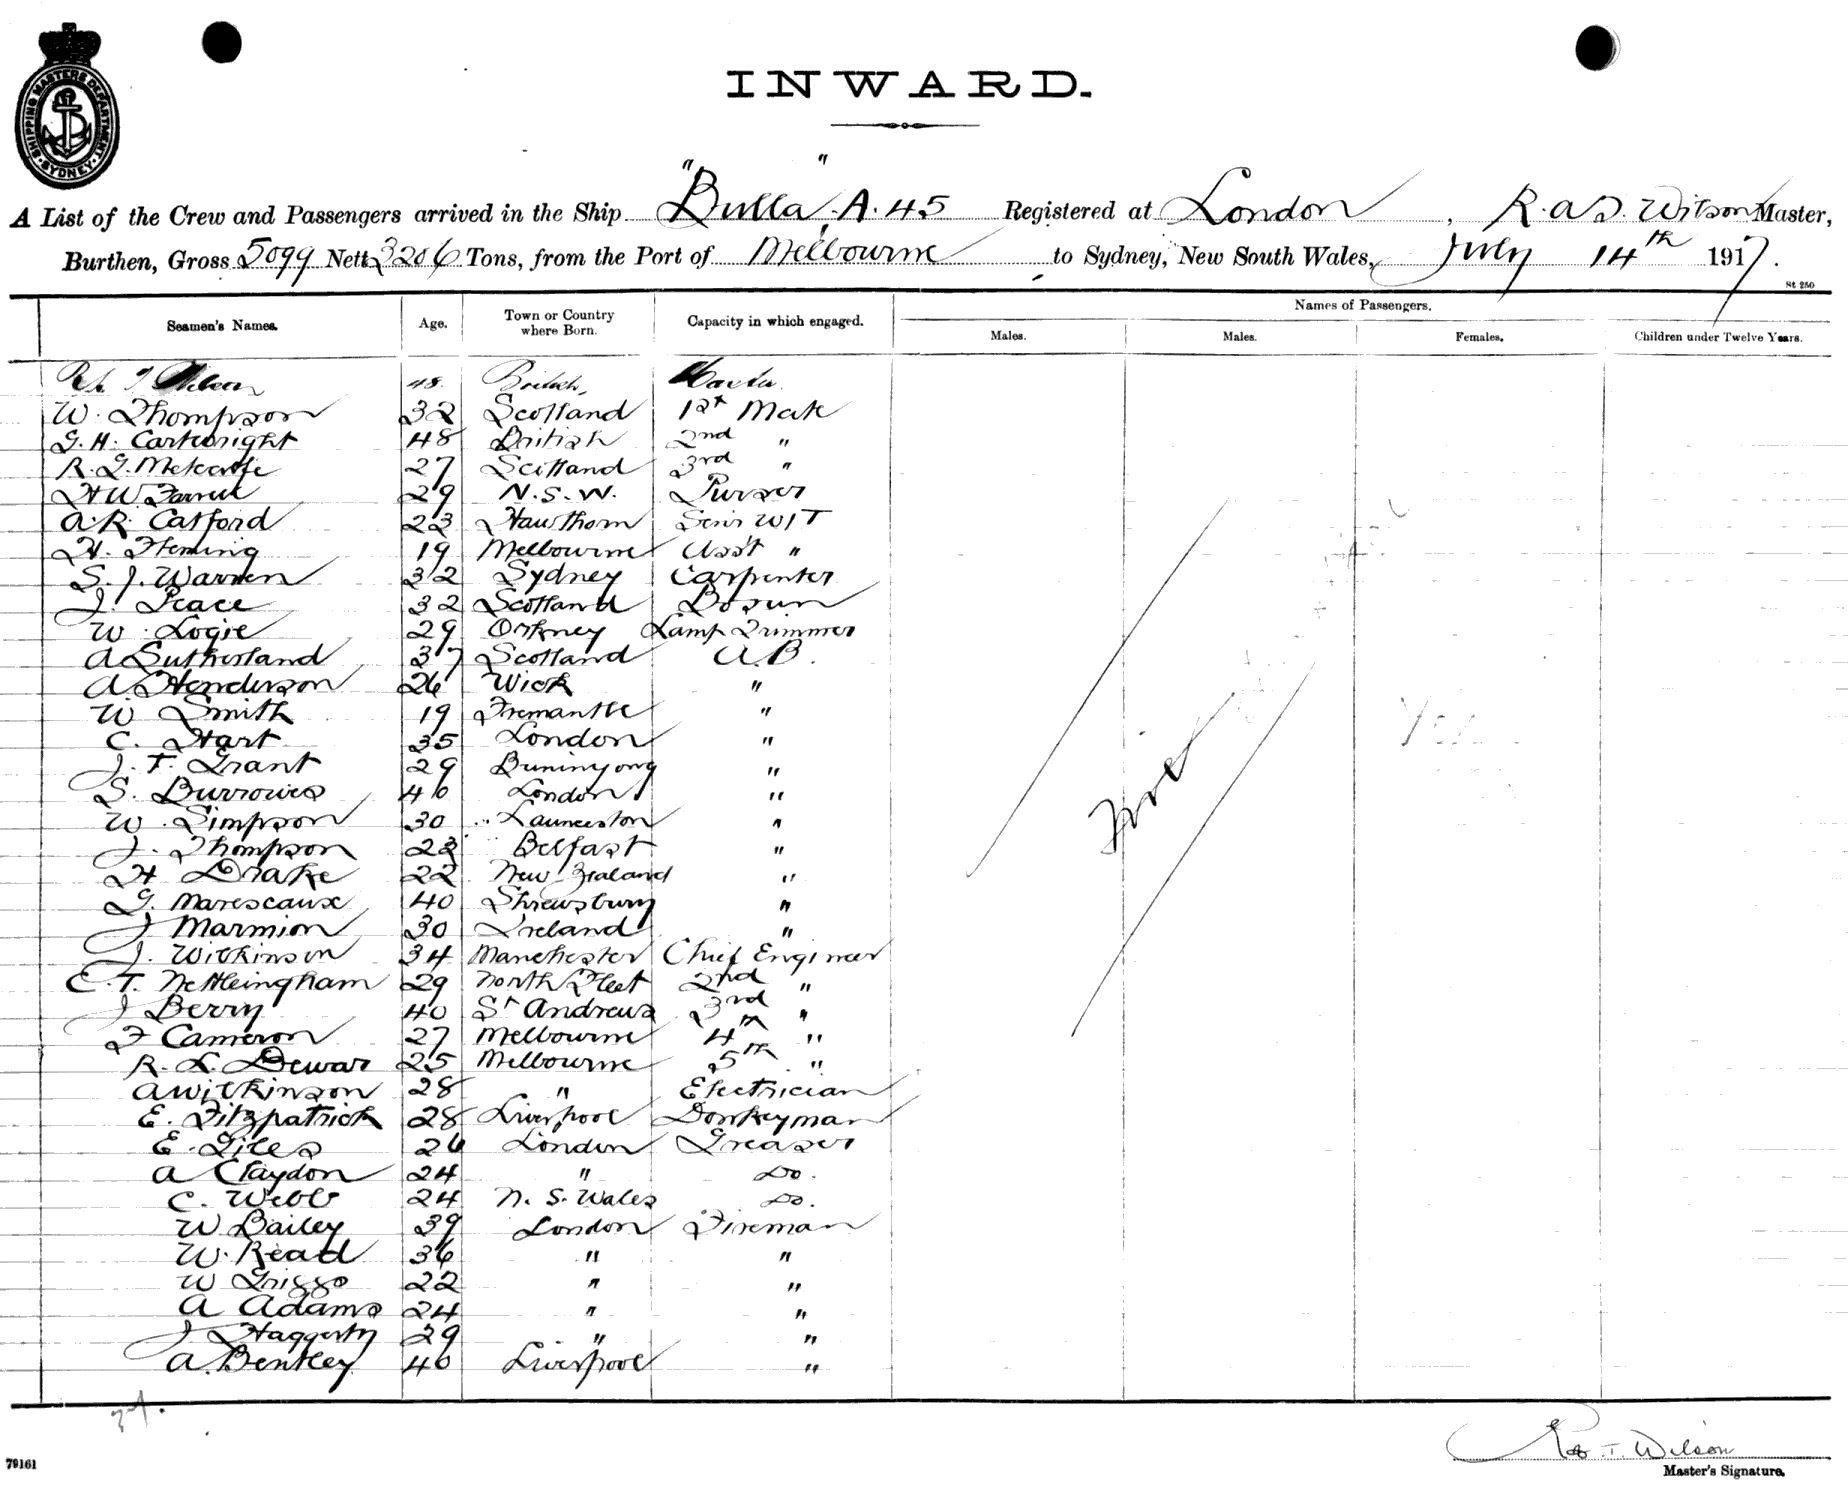 SHIPPING MASTERS DEPARTMENT. SYDNEY.
INWARD.
A List of the Crew and Passengers arrived in the Ship "Bulla". A. 45 Registered at London, R. A. D. Wilson Master,
Burthen, Gross 5099 Nett 3206 Tons, from the Port of Melbourne to Sydney, New South Wales, July 14th 1917.
St 250
Names of Passengers.
Seamen's Names. Age. Town or Country where Born. Capacity in which engaged. Males. Males. Females. Children under Twelve Years.
Wilson 48 British Master
W. Thompson 32 Scotland 1st Mate
G. H. Cartwright 48 British 2nd "
R. G. Metcalfe 27 Scotland 3rd "
H W 29 N.S.W. Purser
A. R. Catford 23 Hawthorn Senr W/T
H. Fleming 19 Melbourne Asst "
S. J. Warren 32 Sydney Carpenter
J. Peace 32 Scotland Bosun
W. Logie 29 Orkney Lamp Trimmer
A Sutherland 37 Scotland A.B.
A. Henderson 26 Wick "
W Smith 19 Fremantle "
C. Hart 35 London "
J. F. Grant 29 Buninyong "
S. Burrows 40 London "
W. Simpson 30 Launceston "
J. Thompson 23 Belfast "
H Drake 22 New Zealand "
G. Marescaux 40 Shrewsbury "
J Marmion 30 Ireland "
J. Wilkinson 34 Manchester Chief Engineer
E. T. Nettleingham 29 North Fleet 2nd "
J Berry 40 St Andrews 3rd "
F Cameron 27 Melbourne 4th "
R. L. Dewar 25 Melbourne 5th "
A Wilkinson 28 " Electrician
E. Fitzpatrick 28 Liverpool Donkeyman
E. Giles 26 London Greaser
A Claydon 24 " Do.
C. Webb 24 N. S. Wales Do.
W Bailey 39 London Fireman
W. Read 36 " "
W Griggs 22 " "
A Adams 24 " "
J Haggerty 29 " "
A. Bentley 40 Liverpool "
T. Wilson
79161
Master's Signature.